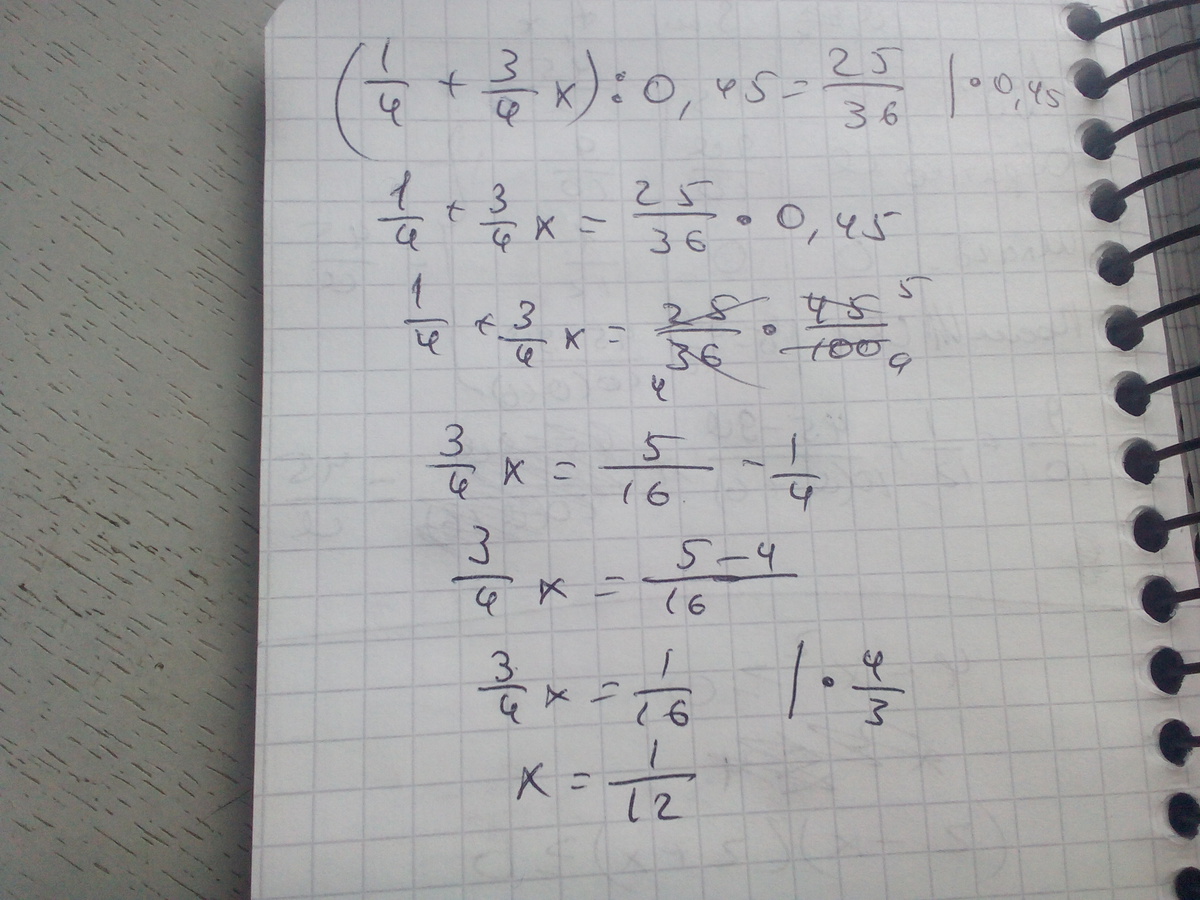 (1/4 + 3/4 x) : 0,45 = 25/36 | · 0,45
1/4 + 3/4 x = 25/36 · 0,45
1/4 + 3/4 x = 25/36 · 45/100 5 4 4
3/4 x = 5/16 - 1/4
3/4 x = 5-4/16
3/4 x = 1/16 | · 4/3
x = 1/12